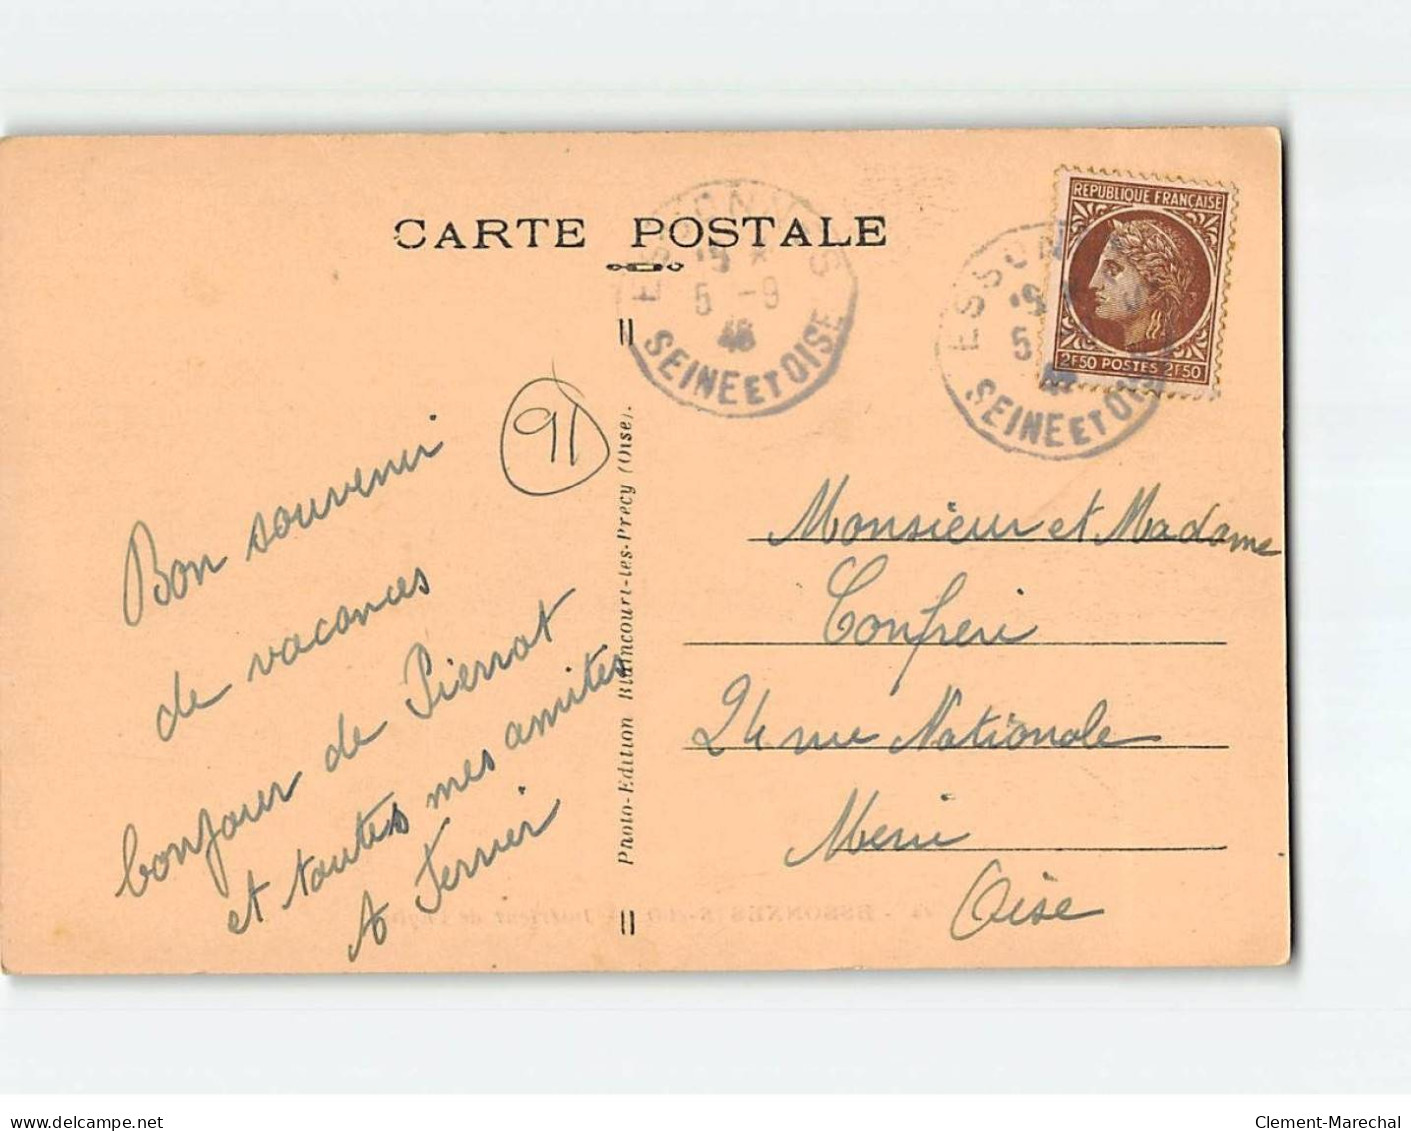 CARTE POSTALE
ESSONNES
5 -9
SEINE ET OISE
ESSONNES
5
SEINE ET OISE
REPUBLIQUE FRANÇAISE
2F50 POSTES 2F50
91
Bon souvenir
de vacances
bonjour de Pierrot
et toutes mes amitiés
A Ferrier
Photo-Edition Blaincourt-les-Précy (Oise).
Monsieur et Madame
Confreri
24 rue Nationale
Meru
Oise
delcampe.net
Clement-Marechal